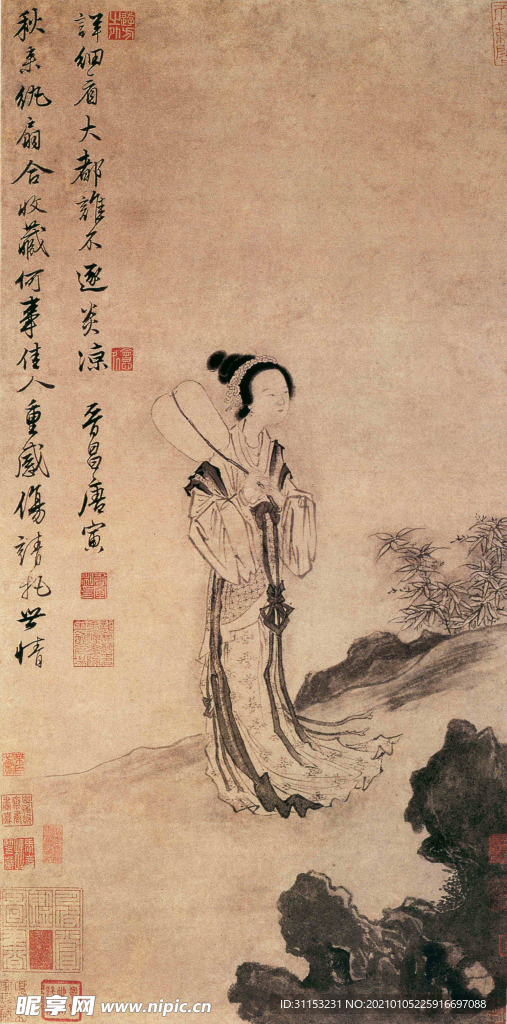 秋來紈扇合收藏何事佳人重感傷請把世情
詳細看大都誰不逐炎涼 晉昌唐寅
昵享网 www.nipic.cn
ID:31153231 NO:20210105225916697088